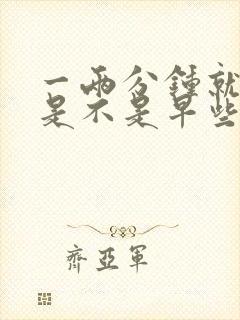 一兩分鍾就
是不是早些
齊亞軍